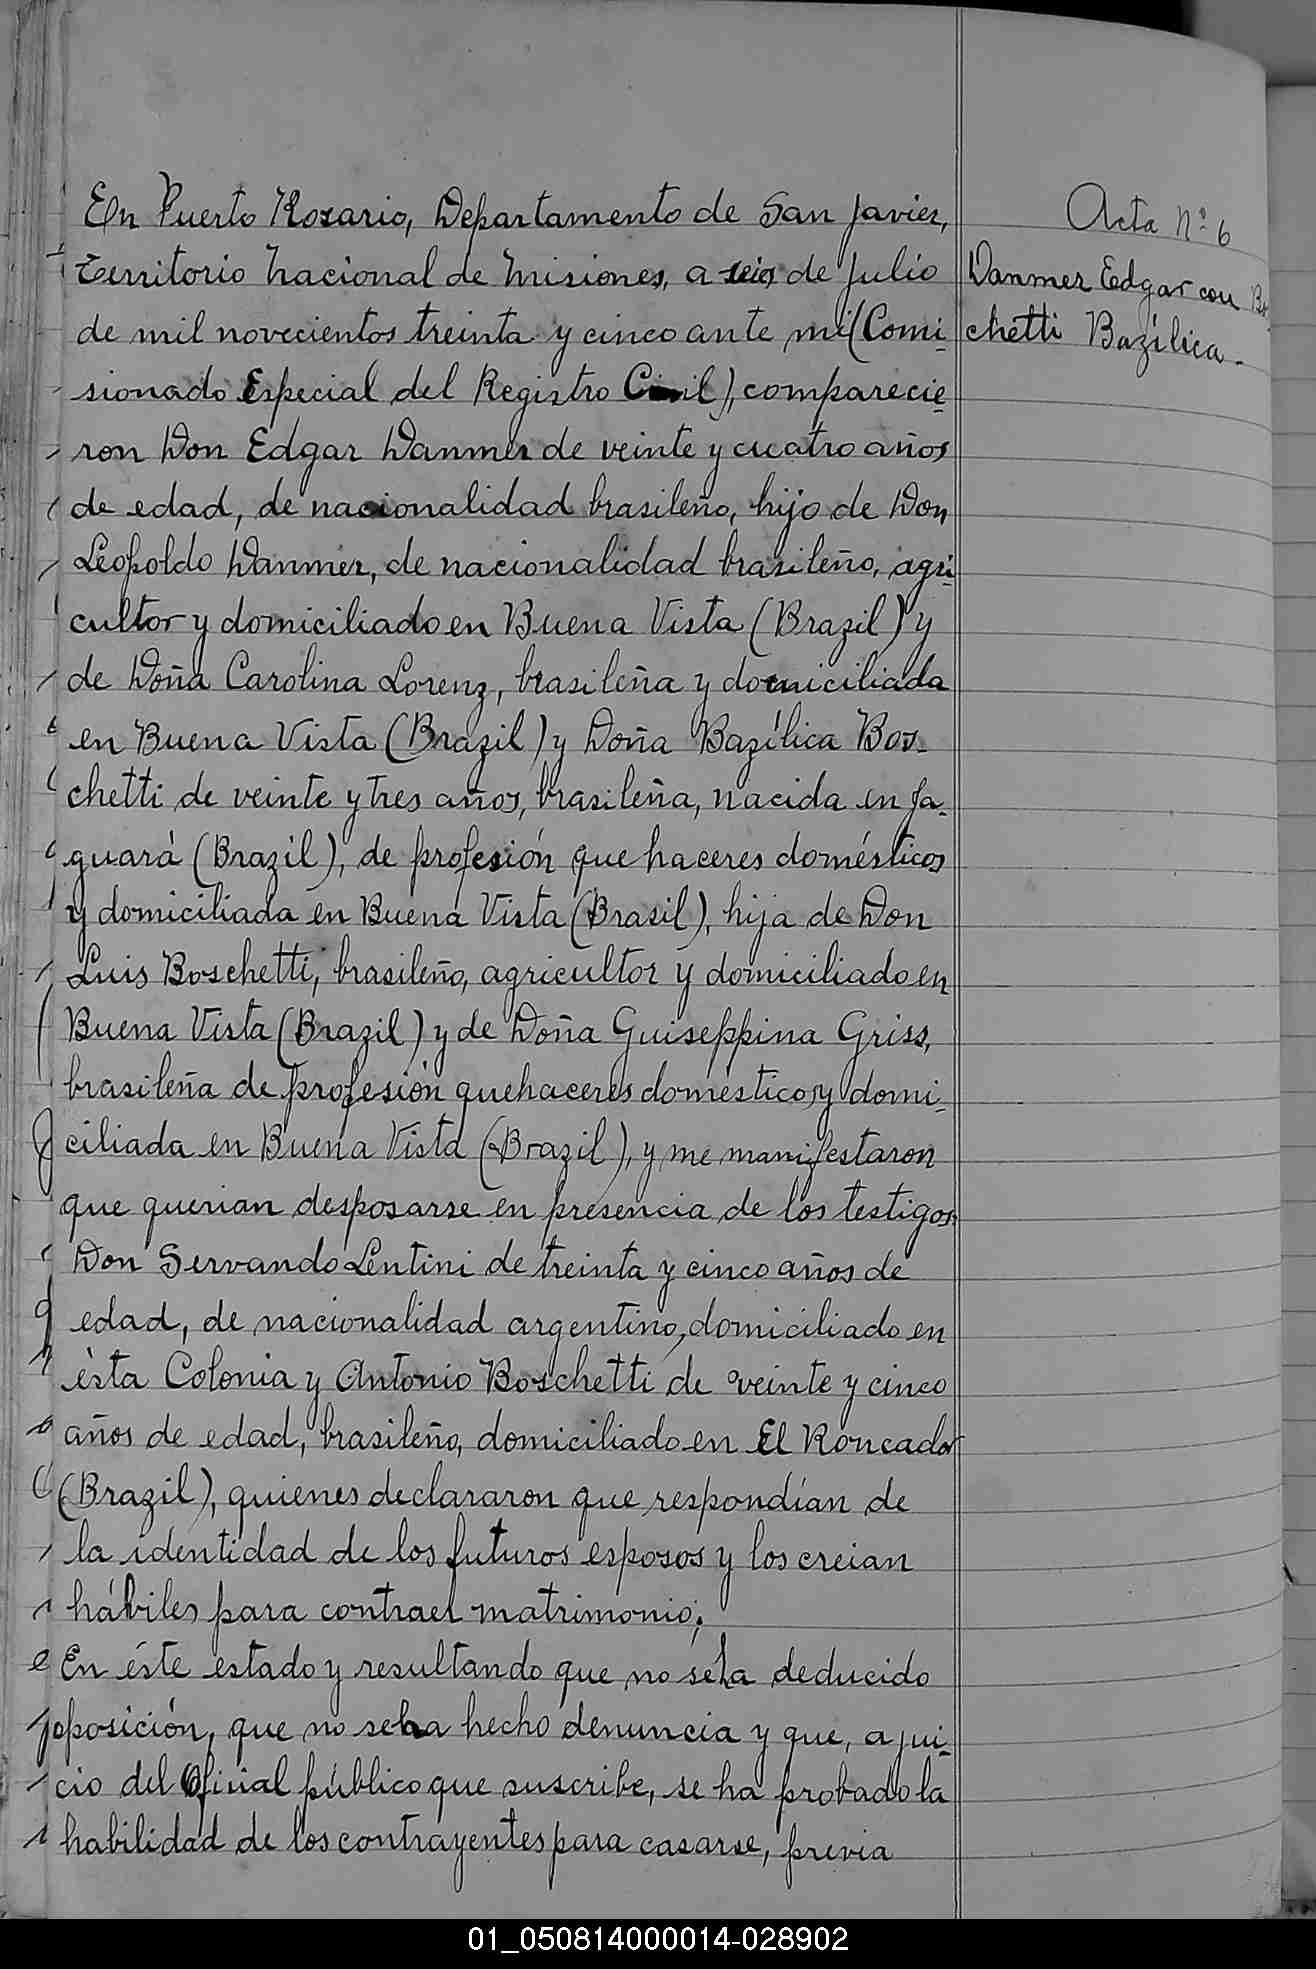 Acta Nº 6
Danmer Edgar con Bos-
chetti Bazílica.
En Puerto Rosario, Departamento de San Javier,
territorio nacional de Misiones, a seis de Julio
de mil novecientos treinta y cinco ante mi (Comi-
sionado Especial del Registro Civil), comparecie-
ron Don Edgar Danmer de veinte y cuatro años
de edad, de nacionalidad brasileño, hijo de Don
Leopoldo Danmer, de nacionalidad brasileño, agri-
cultor y domiciliado en Buena Vista (Brazil) y
de Doña Carolina Lorenz, brasileña y domiciliada
en Buena Vista (Brazil) y Doña Bazílica Bos-
chetti de veinte y tres años, brasileña, nacida en Ja-
guará (Brazil), de profesión que haceres domésticos
y domiciliada en Buena Vista (Brasil), hija de Don
Luis Boschetti, brasileño, agricultor y domiciliado en
Buena Vista (Brazil) y de Doña Guiseppina Griss,
brasileña de profesión quehaceres domésticos y domi-
ciliada en Buena Vista (Brazil), y me manifestaron
que querian desposarse en presencia de los testigos
Don Servando Lentini de treinta y cinco años de
edad, de nacionalidad argentino, domiciliado en
ésta Colonia y Antonio Boschetti de veinte y cinco
años de edad, brasileño, domiciliado en El Roncador
(Brazil), quienes declararon que respondían de
la identidad de los futuros esposos y los creian
hábiles para contraer matrimonio.
En éste estado y resultando que no se ha deducido
oposición, que no se ha hecho denuncia y que, a jui-
cio del Oficial público que suscribe, se ha probado la
habilidad de los contrayentes para casarse, previa
01_050814000014-028902